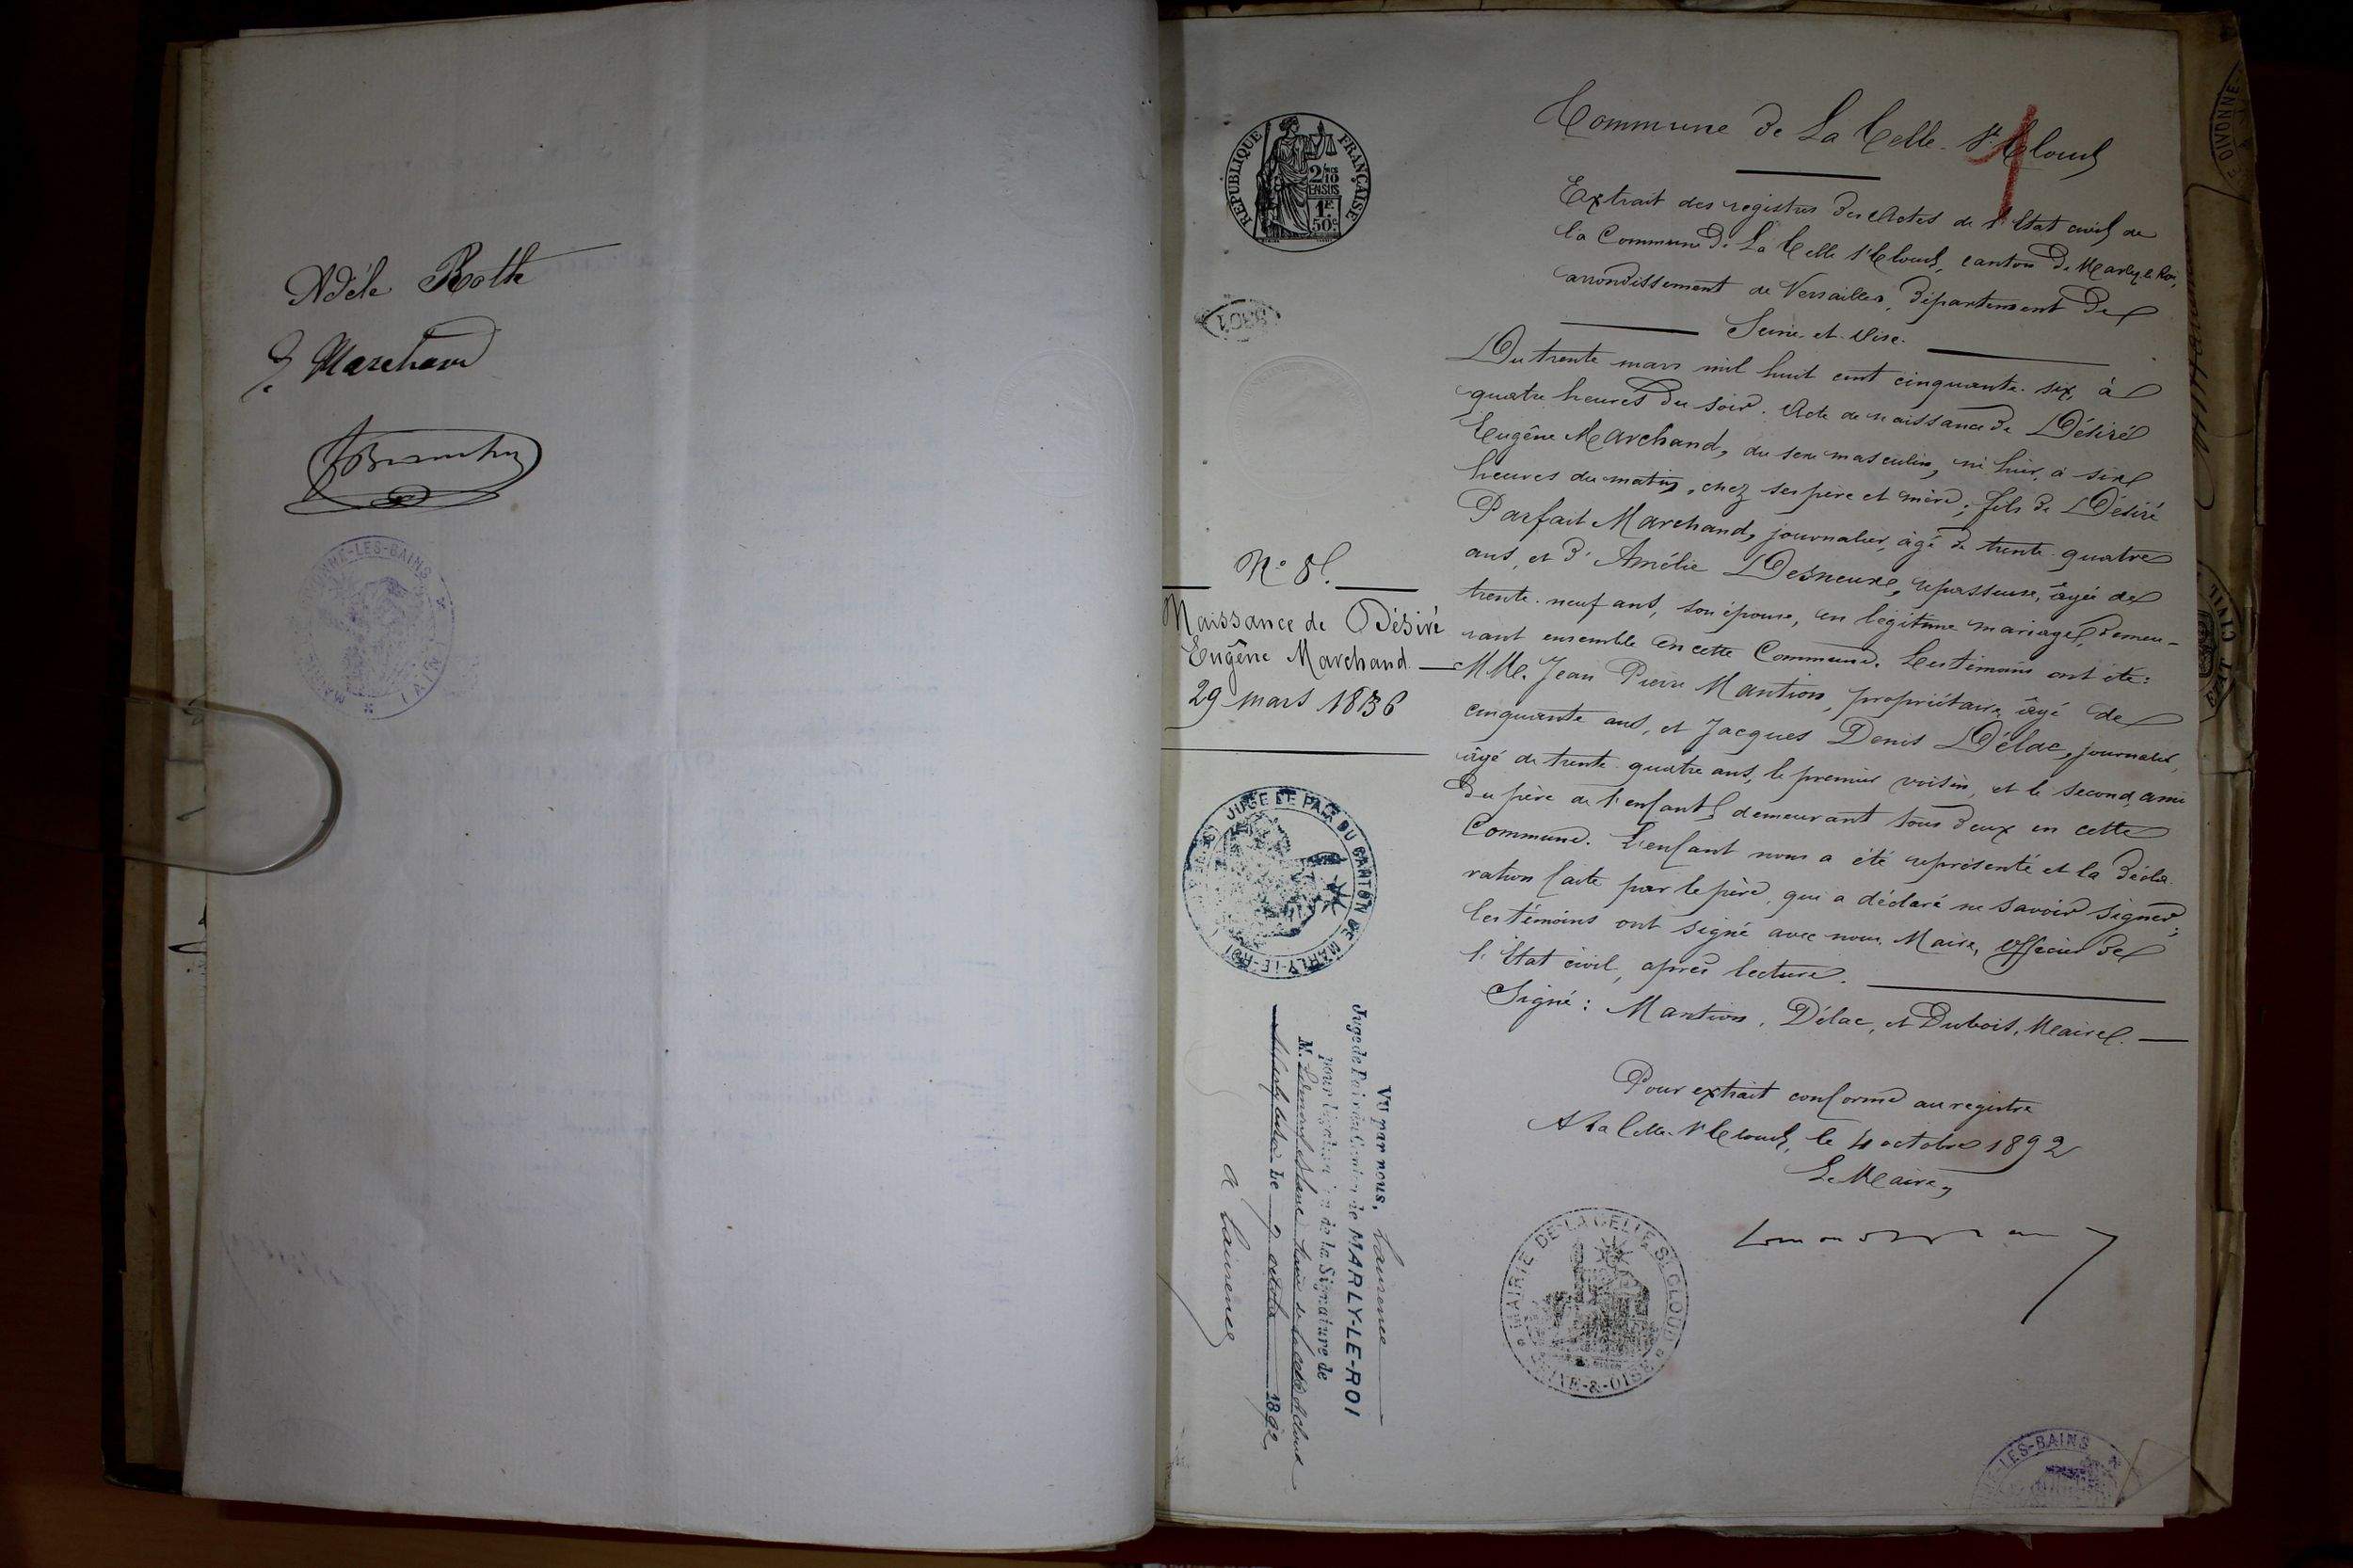 Adèle Roth
E. Marchand
MAIRIE
LES-BAINS
(AIN)
RÉPUBLIQUE FRANÇAISE
2/10
EN SUS
1F
50c
Commune de La Celle-St Cloud
Extrait des registres des Actes de l'Etat civil de
la Commune de La Celle St Cloud, canton de Marly-le-Roi,
arrondissement de Versailles, département de
Seine-et-Oise.
Du trente mars mil huit cent cinquante-six, à
quatre heures du soir. Acte de naissance de Désiré
Eugène Marchand, du sexe masculin, né hier, à six
heures du matin, chez ses père et mère; fils de Désiré
Parfait Marchand, journalier, âgé de trente-quatre
ans, et d'Amélie Desneux, repasseuse, âgée de
trente-neuf ans, son épouse, en légitime mariage, demeu-
rant ensemble en cette Commune. Les témoins ont été:
MM. Jean Pierre Mantion, propriétaire, âgé de
cinquante ans, et Jacques Denis Délac, journalier,
âgé de trente-quatre ans, le premier voisin, et le second, ami
du père de l'enfant, demeurant tous deux en cette
Commune. L'enfant nous a été représenté et la décla-
ration faite par le père, qui a déclaré ne savoir signer;
les témoins ont signé avec nous, Maire, officier de
l'Etat civil, après lecture.
Signé: Mantion, Délac, et Dubois, Maire.
Pour extrait conforme au registre
A La Celle-St Cloud, le 4 octobre 1892
Le Maire,
MAIRIE DE LA CELLE St CLOUD
SEINE-&-OISE
N° 8.
Naissance de Désiré
Eugène Marchand
29 mars 1856
JUGE DE PAIX DU CANTON DE MARLY-LE-ROI
Vu par nous, Lairence
Juge de Paix du Canton de MARLY-LE-ROI
pour légalisation de la Signature de
M. maire de la Celle St Cloud
Le 7 octobre 1892
A Lairence
LES-BAINS
DIVONNE
ETAT CIVIL